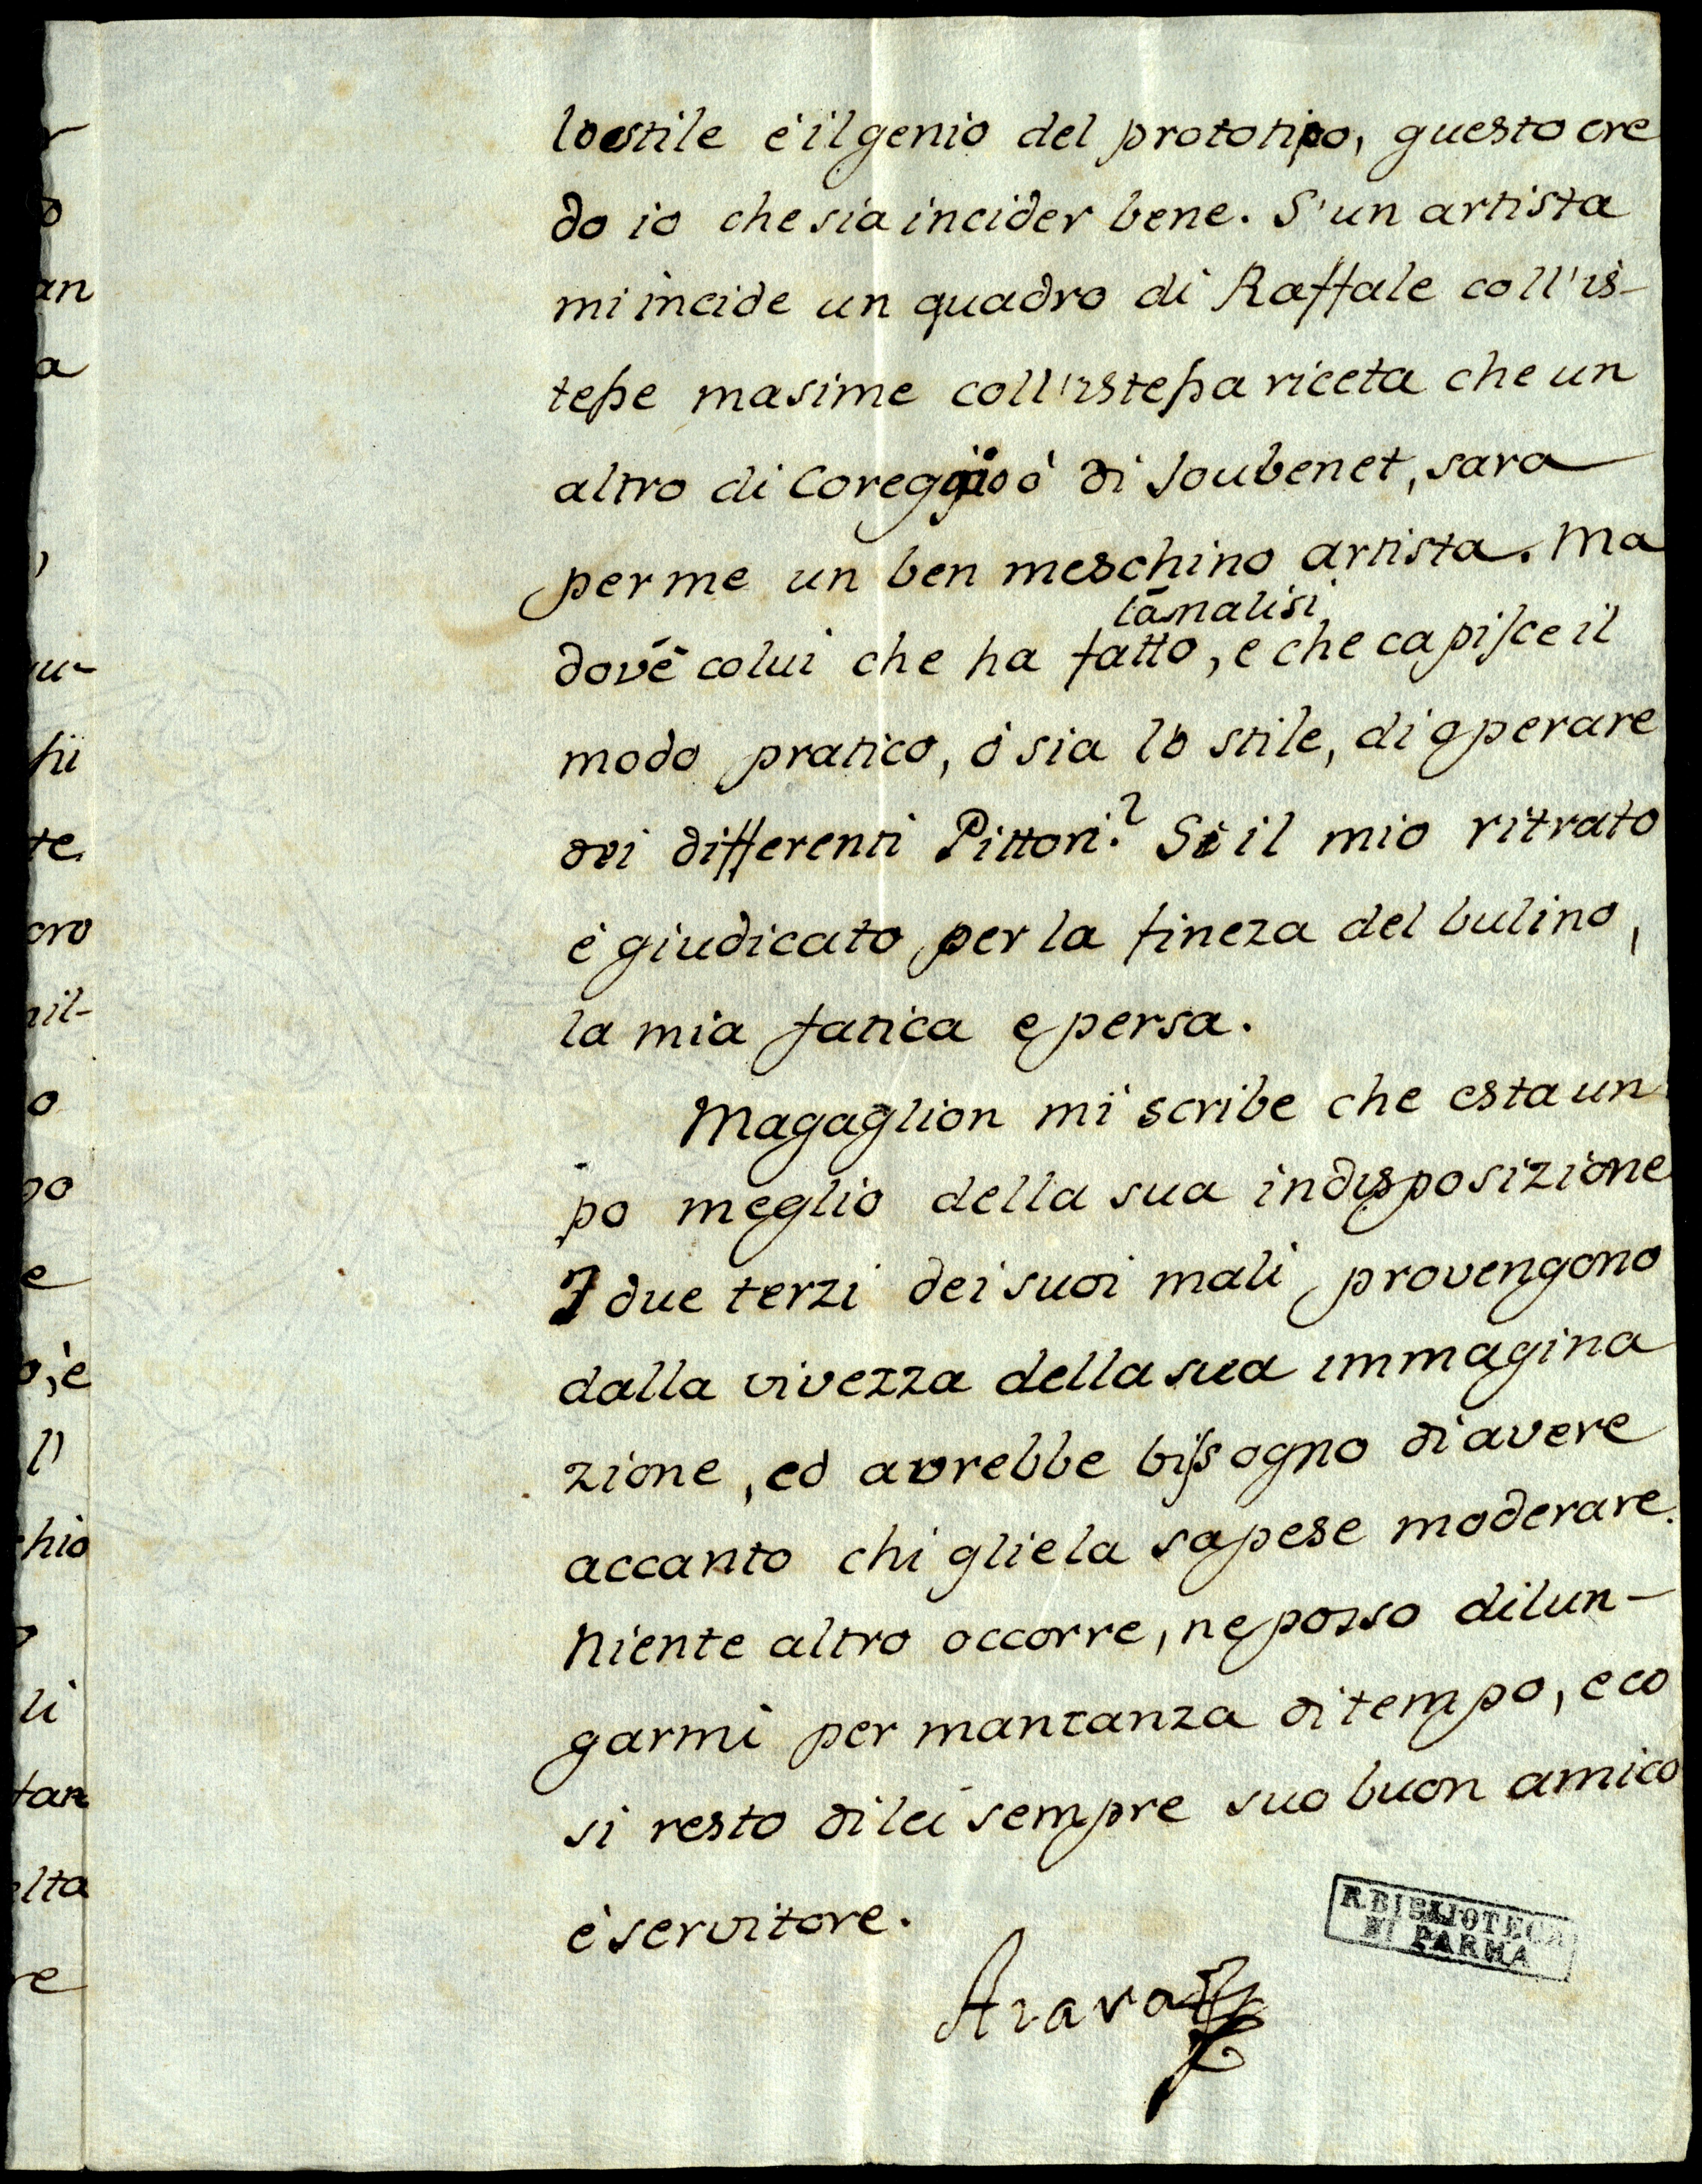 lo stile è il genio del prototipo, questo cre
do io che sia incider bene. S'un artista
mi incide un quadro di Raffale coll'is-
tesse masime coll'istessa riceta che un
altro di Coreggio ò di Joubenet, sara
per me un ben meschino artista. Ma
l'analisi
dov'è colui che ha fatto, e che capisce il
modo pratico, ò sia lo stile, di operare
dei differenti Pittori? Si il mio ritrato
è giudicato per la fineza del bulino,
la mia fatica e persa.
Magaglion mi scribe che esta un
po meglio della sua indisposizione
I due terzi dei suoi mali provengono
dalla vivezza della sua immagina
zione, ed avrebbe bissogno di avere
accanto chi gliela sapese moderare.
Niente altro occorre, ne posso dilun-
garmi per mancanza di tempo, e co
si resto di lei sempre suo buon amico
è servitore.
Azara
R. BIBLIOTECA
DI PARMA